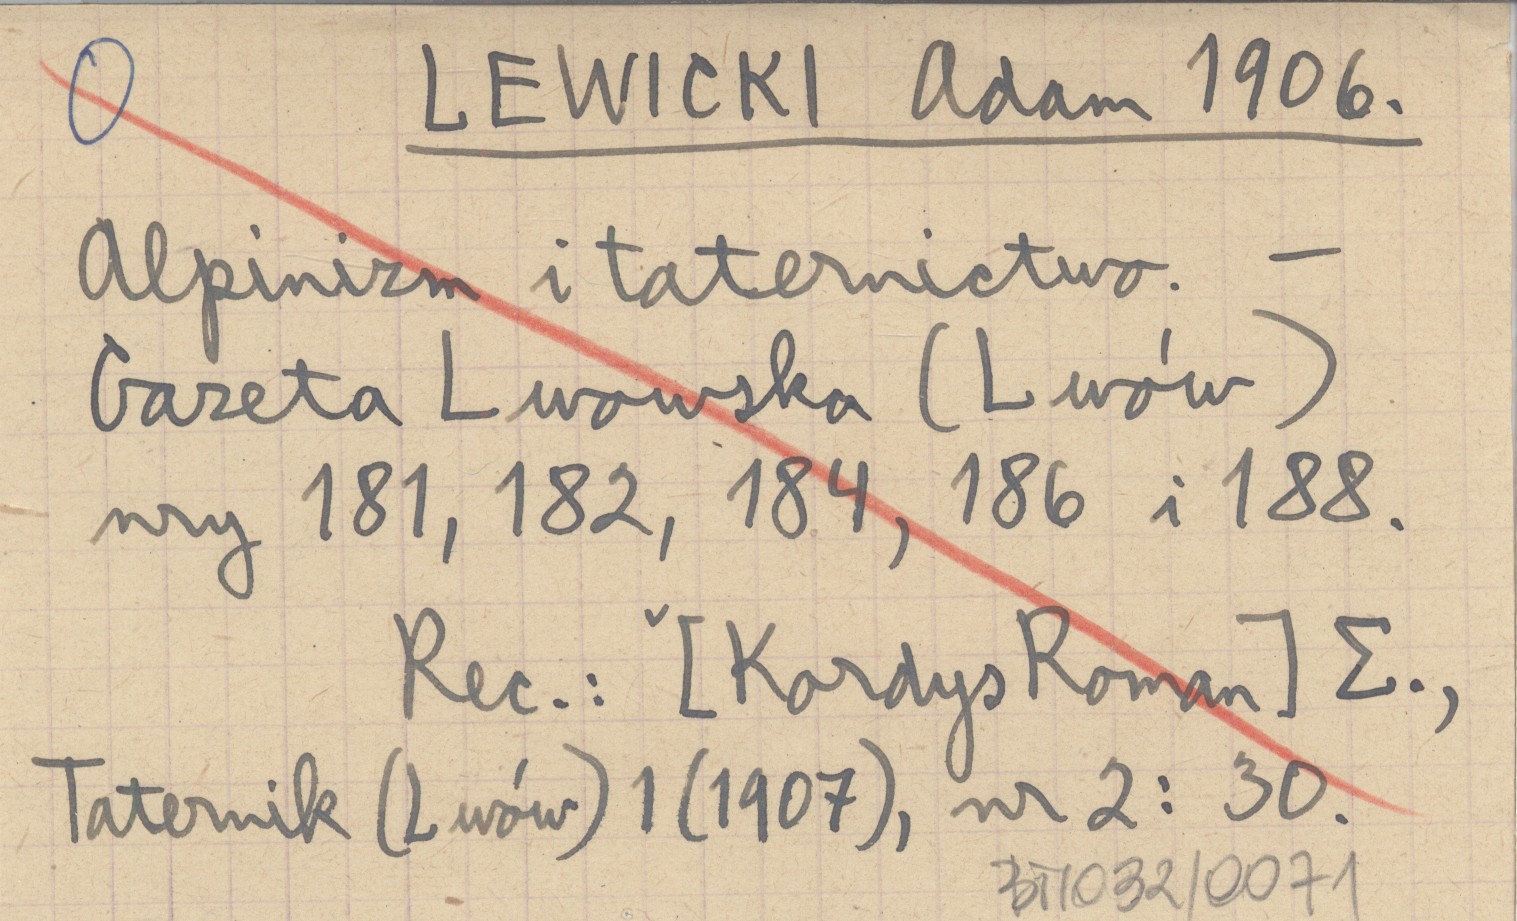 O LEWICKI Adam 1906.
Alpinizm i taternictwo. –
Gazeta Lwowska (Lwów)
nry 181, 182, 184, 186 i 188.
Rec.: ˇ[Kordys Roman] Σ.,
Taternik (Lwów) 1 (1907), nr 2: 30.
032/0071